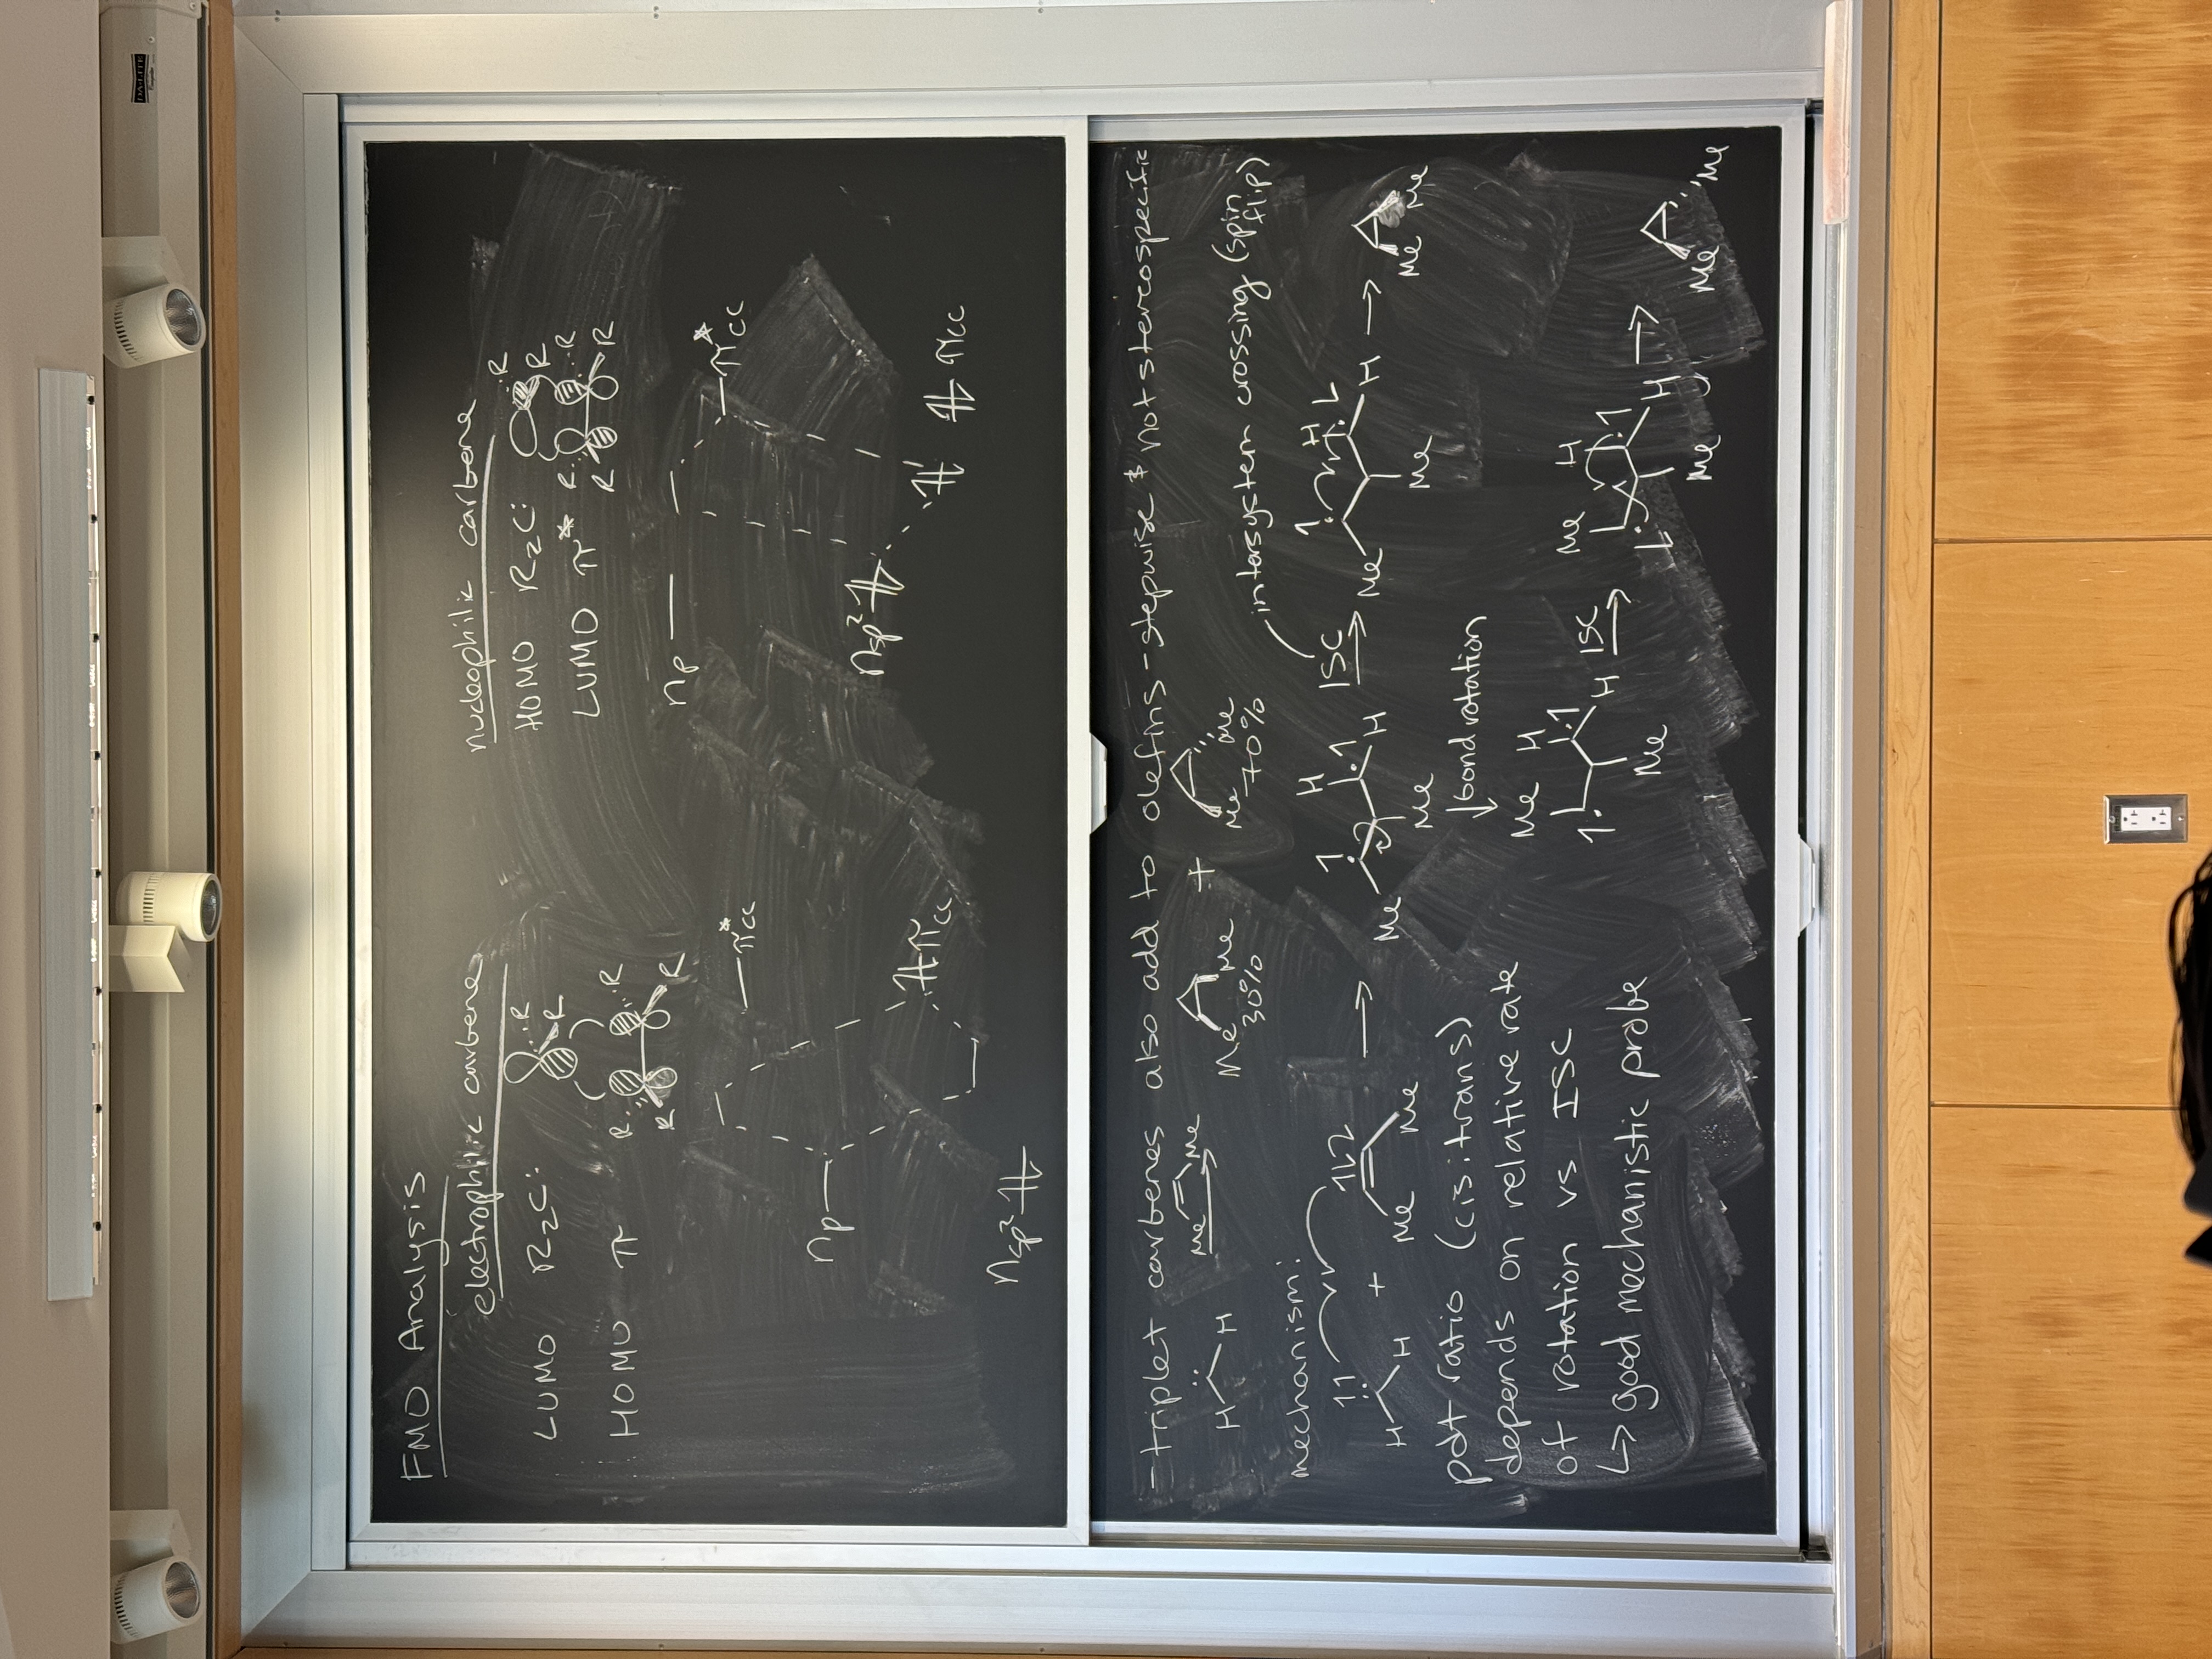 DA-LITE
FMO Analysis
electrophilic carbene
LUMO R₂C:
R
R
HOMO π
R R
R R
π*cc
np
π cc
nsp²
nucleophilic carbene
HOMO R₂C:
R
R
LUMO π*
R R
R R
np
π*cc
nsp²
πcc
- triplet carbenes also add to olefins - stepwise & not stereospecific
H H
Me Me
Me Me
30%
+
Me Me
70%
intersystem crossing (spin flip)
mechanism:
H H
+
Me Me
→
Me
H
H
Me
ISC
Me
H
H
Me
→
Me Me
pdt ratio (cis:trans)
depends on relative rate
of rotation vs ISC
↳ good mechanistic probe
↓ bond rotation
Me H
H
Me
ISC
Me H
H
Me
→
Me Me